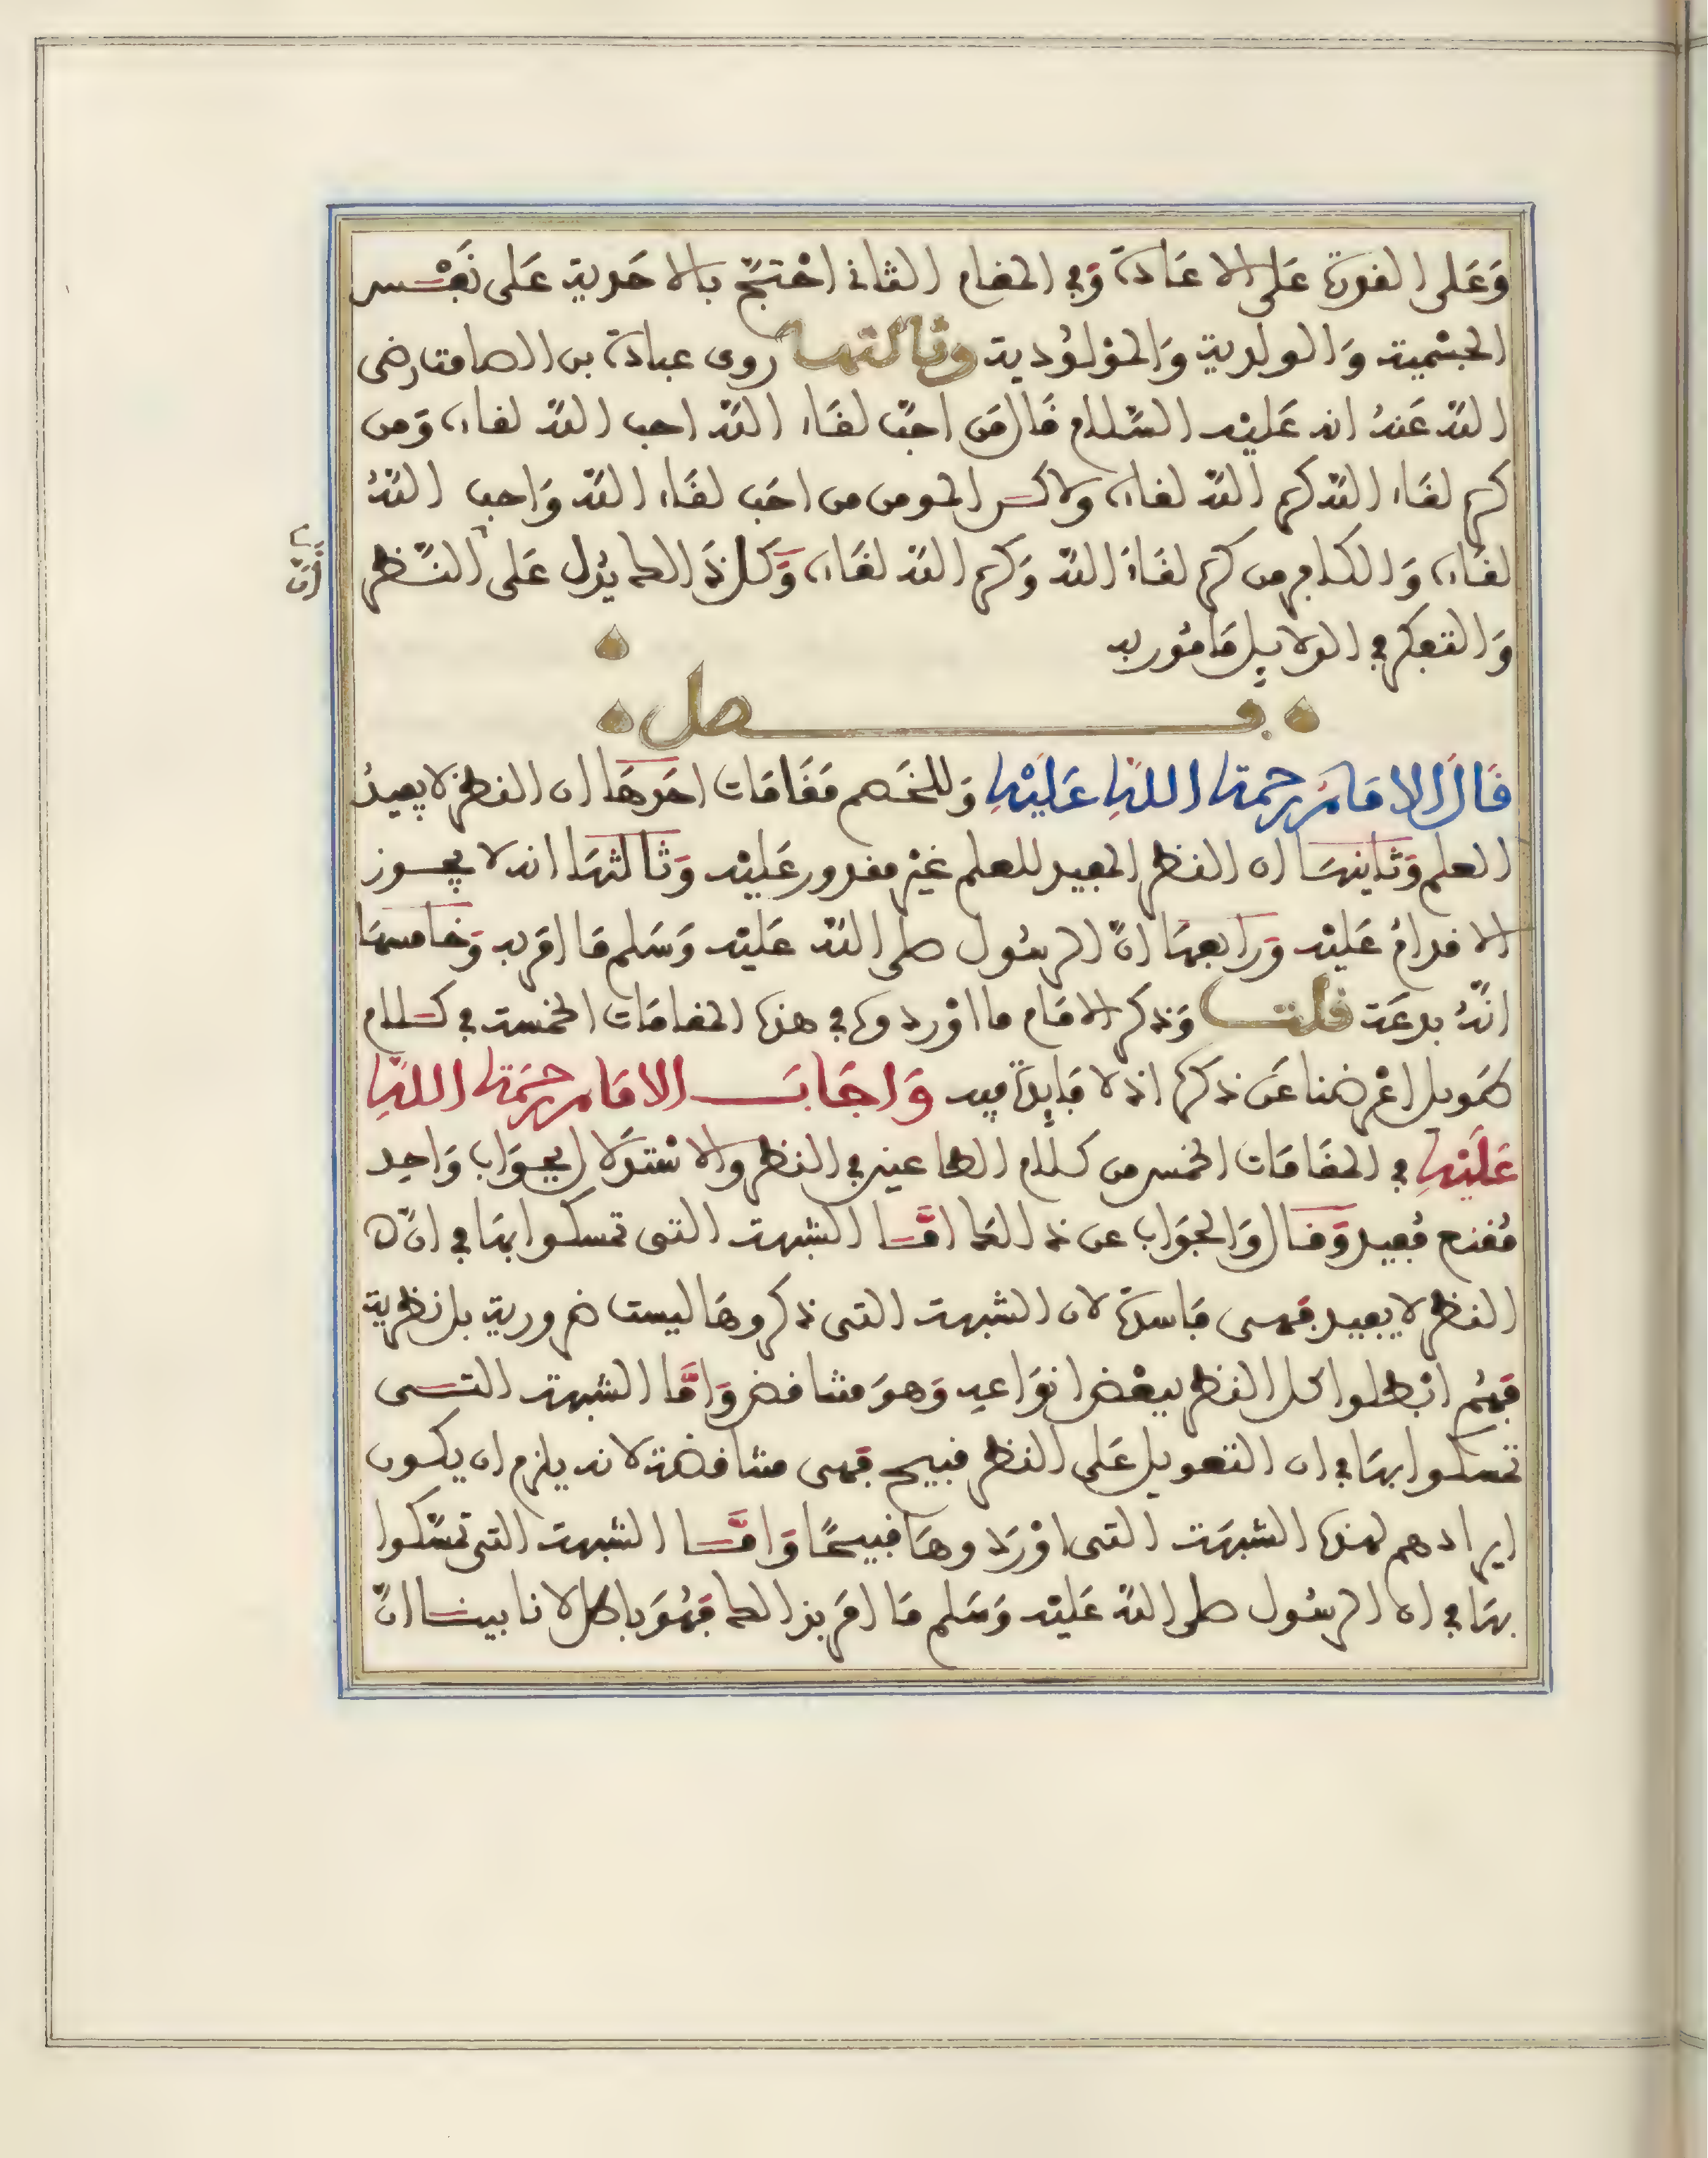 وَعَلى القدرة عَلى الاعَادة وَفي المقام الثاني احْتجّ بالاحَدية عَلى نَفْس
الجسْمية وَالولدية وَالموْلوُدية وثالثها روى عبادة بن الصامت رضى
اللّه عَنهُ انه عَليْه السَّلام قَال مَن احبّ لقَاء اللّه احب اللّه لقاءه وَمن
كره لقَاء اللّه كره اللّه لقاءه ولاكن المومن من احَب لقَاء اللّه وَاحب اللّهُ
لقاءه وَالكافر من كره لقَاءَ اللّه وَكره اللّه لقَاءه وَكل ذَالك يدُل عَلى النَّظر
أنّ
وَالتفكر في الدلايل مَامُور به
فصل
قَالَ الامَامُ رحمة اللهِ عَليْهِ وَللخَصم مَقَامَات احَدهَا ان النظر لا يفيدُ
العلم وَثانيهَا ان النظر المفيد للعلم غيْر مقدور عَليْه وَثالثهَا انه لا يجوز
الاقدامُ عَليْه وَرابعهَا انّ الرسُول صلى اللّه عَليْه وَسَلم مَا امَر به وَخامسهَا
انّهُ بدعَة قلت وَذكر الامَام ما اوْردوه في هذه المقامَات الخمسة في كلام
طَويل اعْرضنا عَن ذكره اذ لا فَايدَة فيه وَاجَابَ الامَام رحمَة اللهِ
عَليْهِ في المقَامَات الخمس من كلام الطاعنين في النظر والاسْتدلَال بجوَاب وَاحِد
مُقنع مُفيد وَقال وَالجوَاب عن ذالك امَّا الشبهة التى تمسكوا بهَا في انّ
النظر لا يفيد فهى فَاسدة لان الشبهة التى ذكروهَا ليست ضرورية بل نظرية
فَهُم ابْطلوا كل النظر ببعْض انوَاعه وَهوَ متناقض وَامَّا الشبهة التى
تمسكوا بهَا في ان التعويل عَلى النظر قبيح فهى متناقضة لانه يلزم ان يكون
ايرادهم لهذه الشبهَة التى اوْرَدوهَا قبيحًا وَامَّا الشبهة التى تمسّكوا
بهَا في ان الرسُول صلى اللّه عَليْه وَسَلم مَا امَر بذالك فَهُوَ باطل لانا بينا انّ